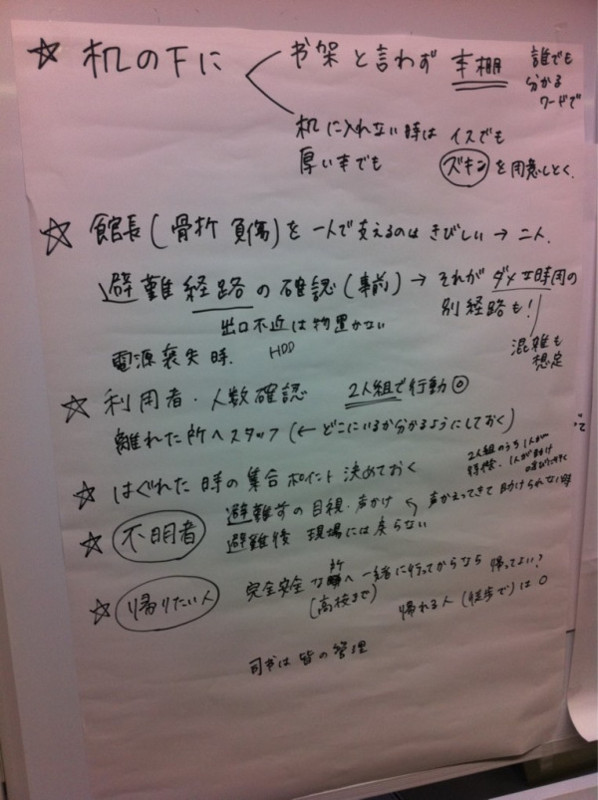 ☆ 机の下に
书架 と言わず 本棚
誰でも
分かる
ワードで
机に入れない時は イスでも
厚い本でも
ズキン を用意しとく.
☆ 館長(骨折 負傷)を 一人で支えるのは きびしい → 二人.
避難経路の確認(事前) → それが ダメな時用の
別経路も!
出口不近は物置かない
混雑も
想定
電源喪失時.
HDD
☆ 利用者・人数確認 2人組で行動 ◎
離れた所へスタッフ(←どこにいるか分かるようにしておく)
☆ はぐれた時の集合ポイント 決めておく
2人組のうち1人が
待機・1人が助け
☆ 不明者
避難前の目視・声かけ ← 声かえってきて 助けられない時
避難後 現場には戻らない
☆ 帰りたい人
完全安全な所へ 一緒に行ってからなら 帰ってよい?
(高校まで)
帰れる人(徒歩で)は○
司书は皆の管理